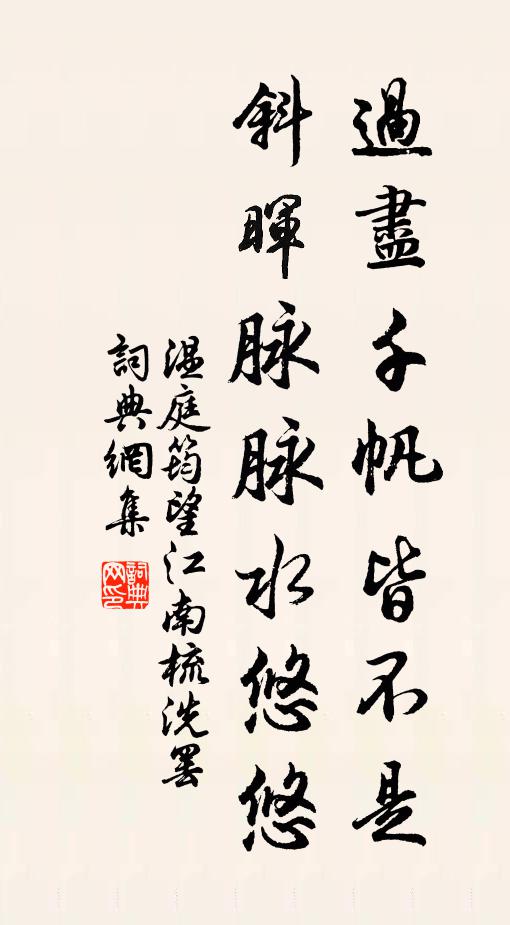 過盡千帆皆不是
斜暉脉脉水悠悠
温庭筠望江南梳洗罷
詞典網集
詞典网印